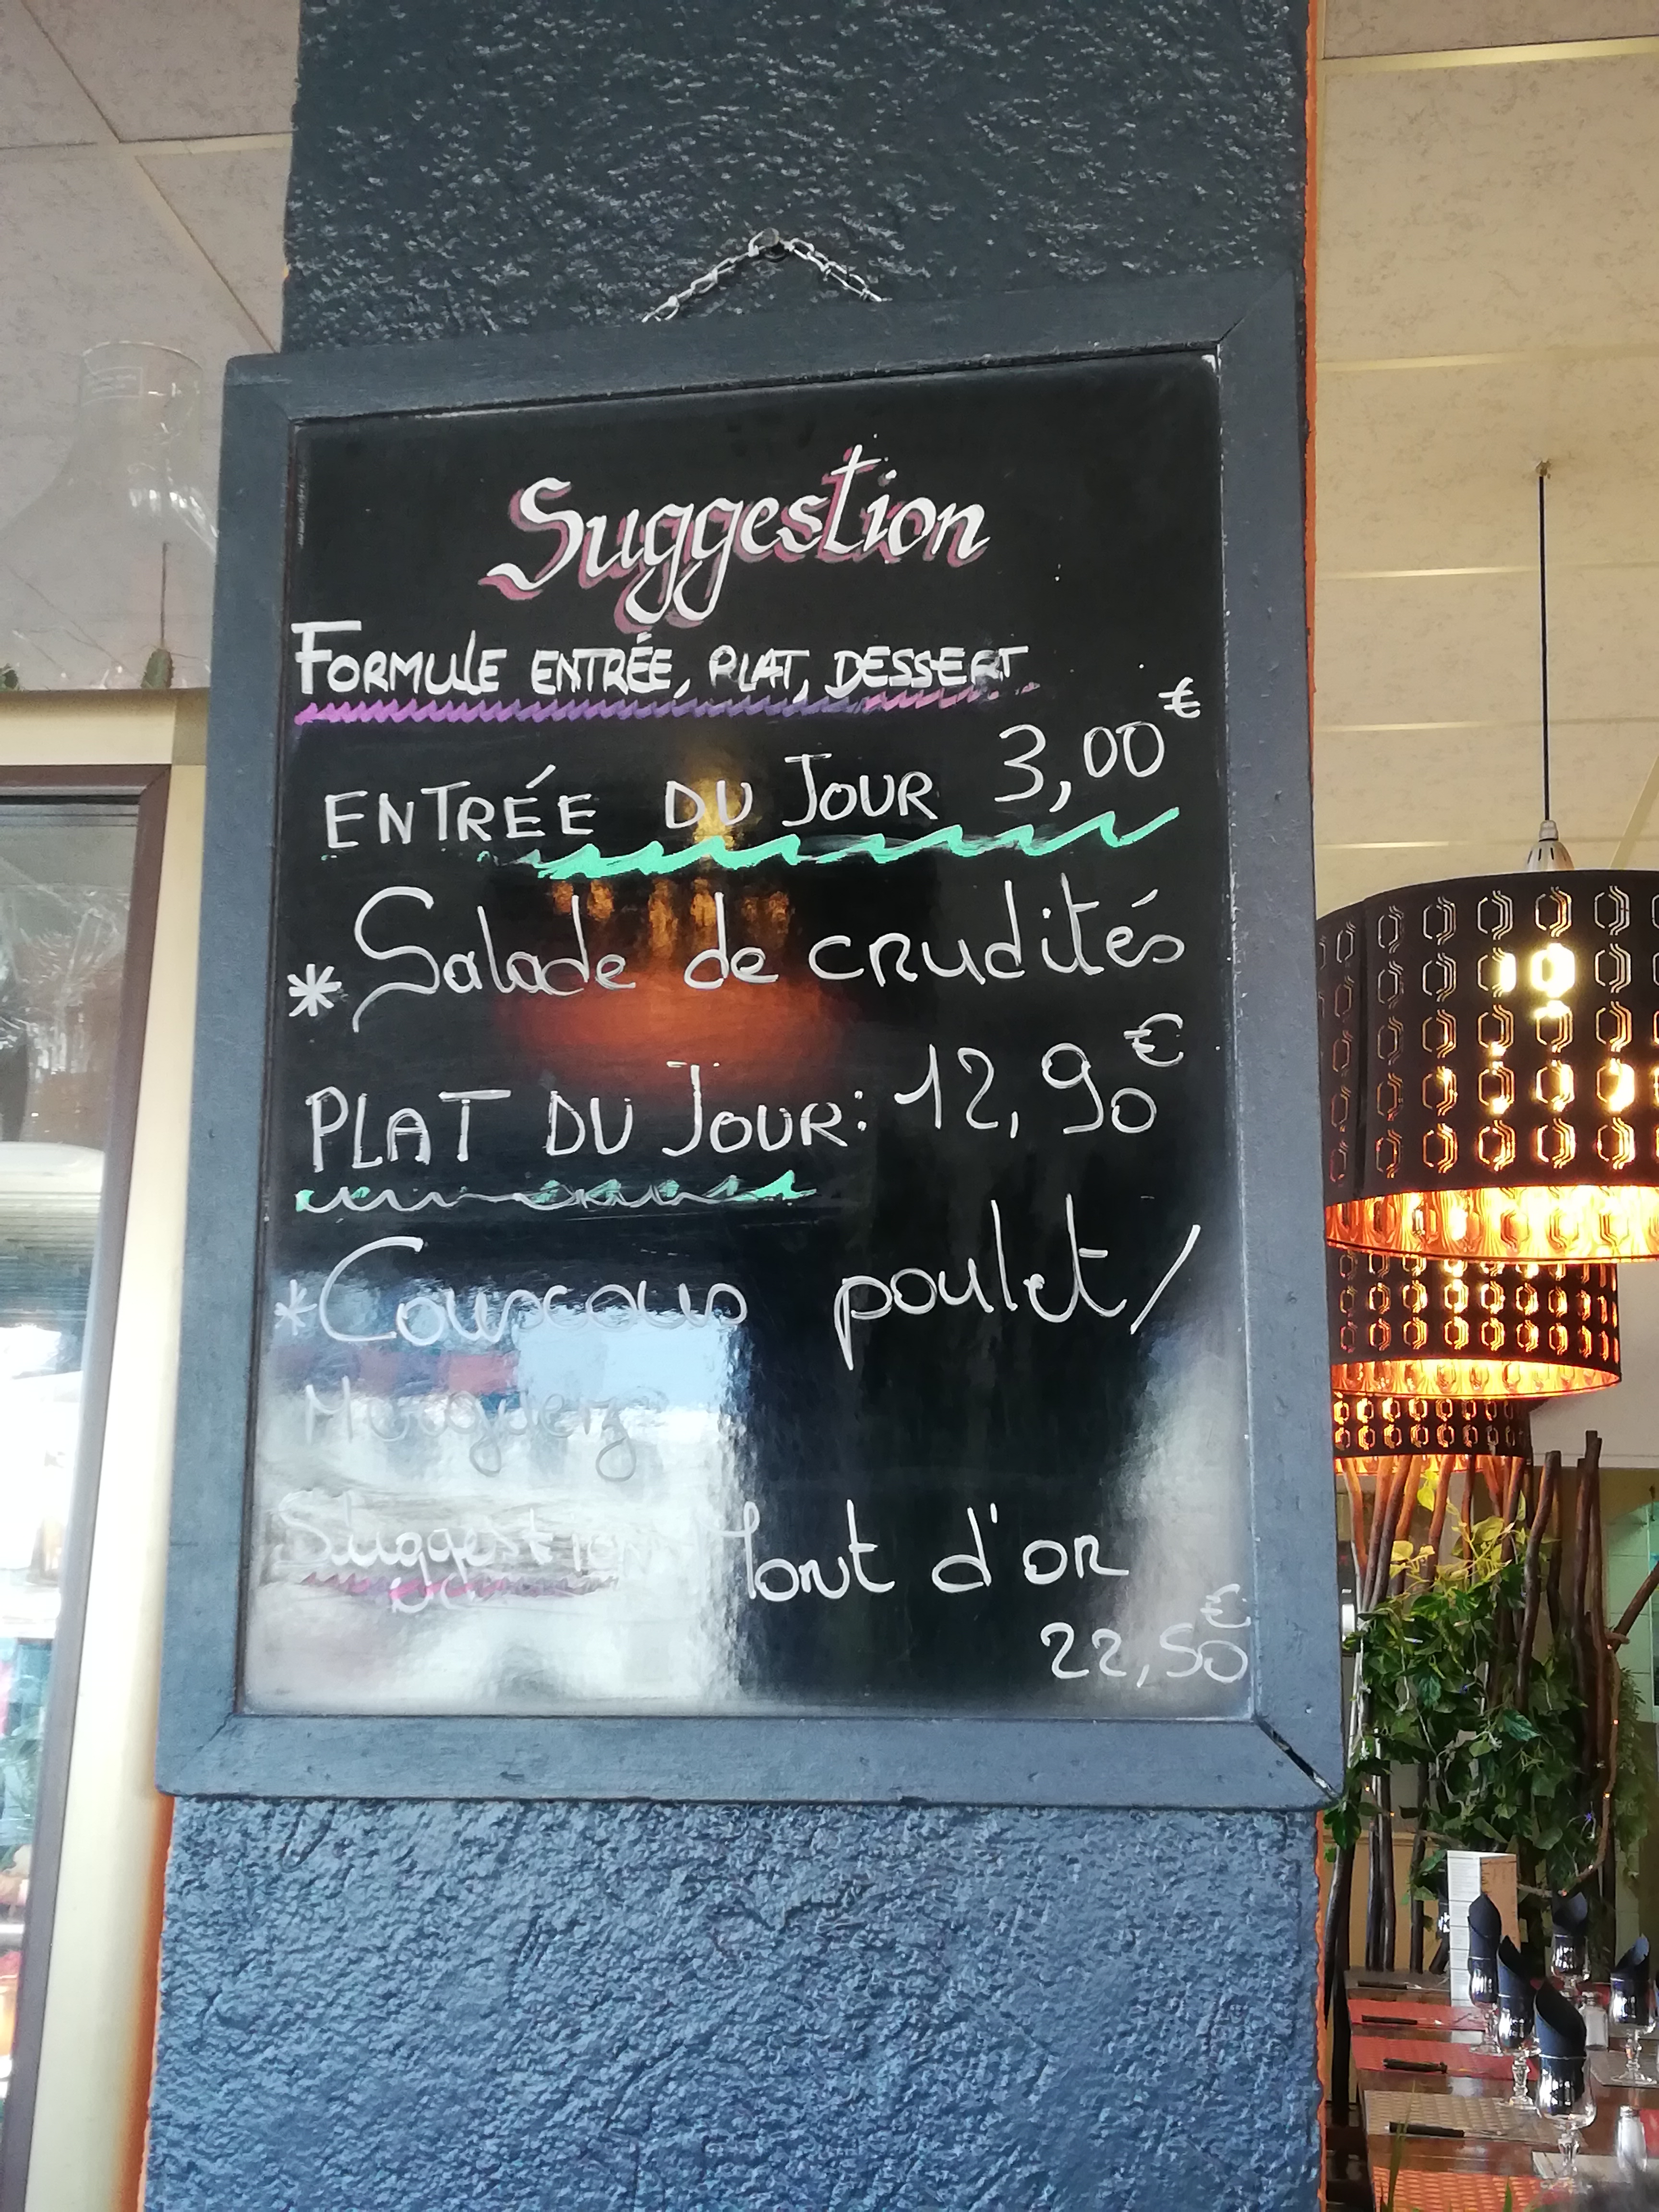 Suggestion
FORMULE ENTRÉE, PLAT, DESSERT
ENTRÉE DU JOUR 3,00€
* Salade de crudités
PLAT DU JOUR: 12,90€
* Couscous poulet/
Merguez
Suggestion Mont d'or
22,50€